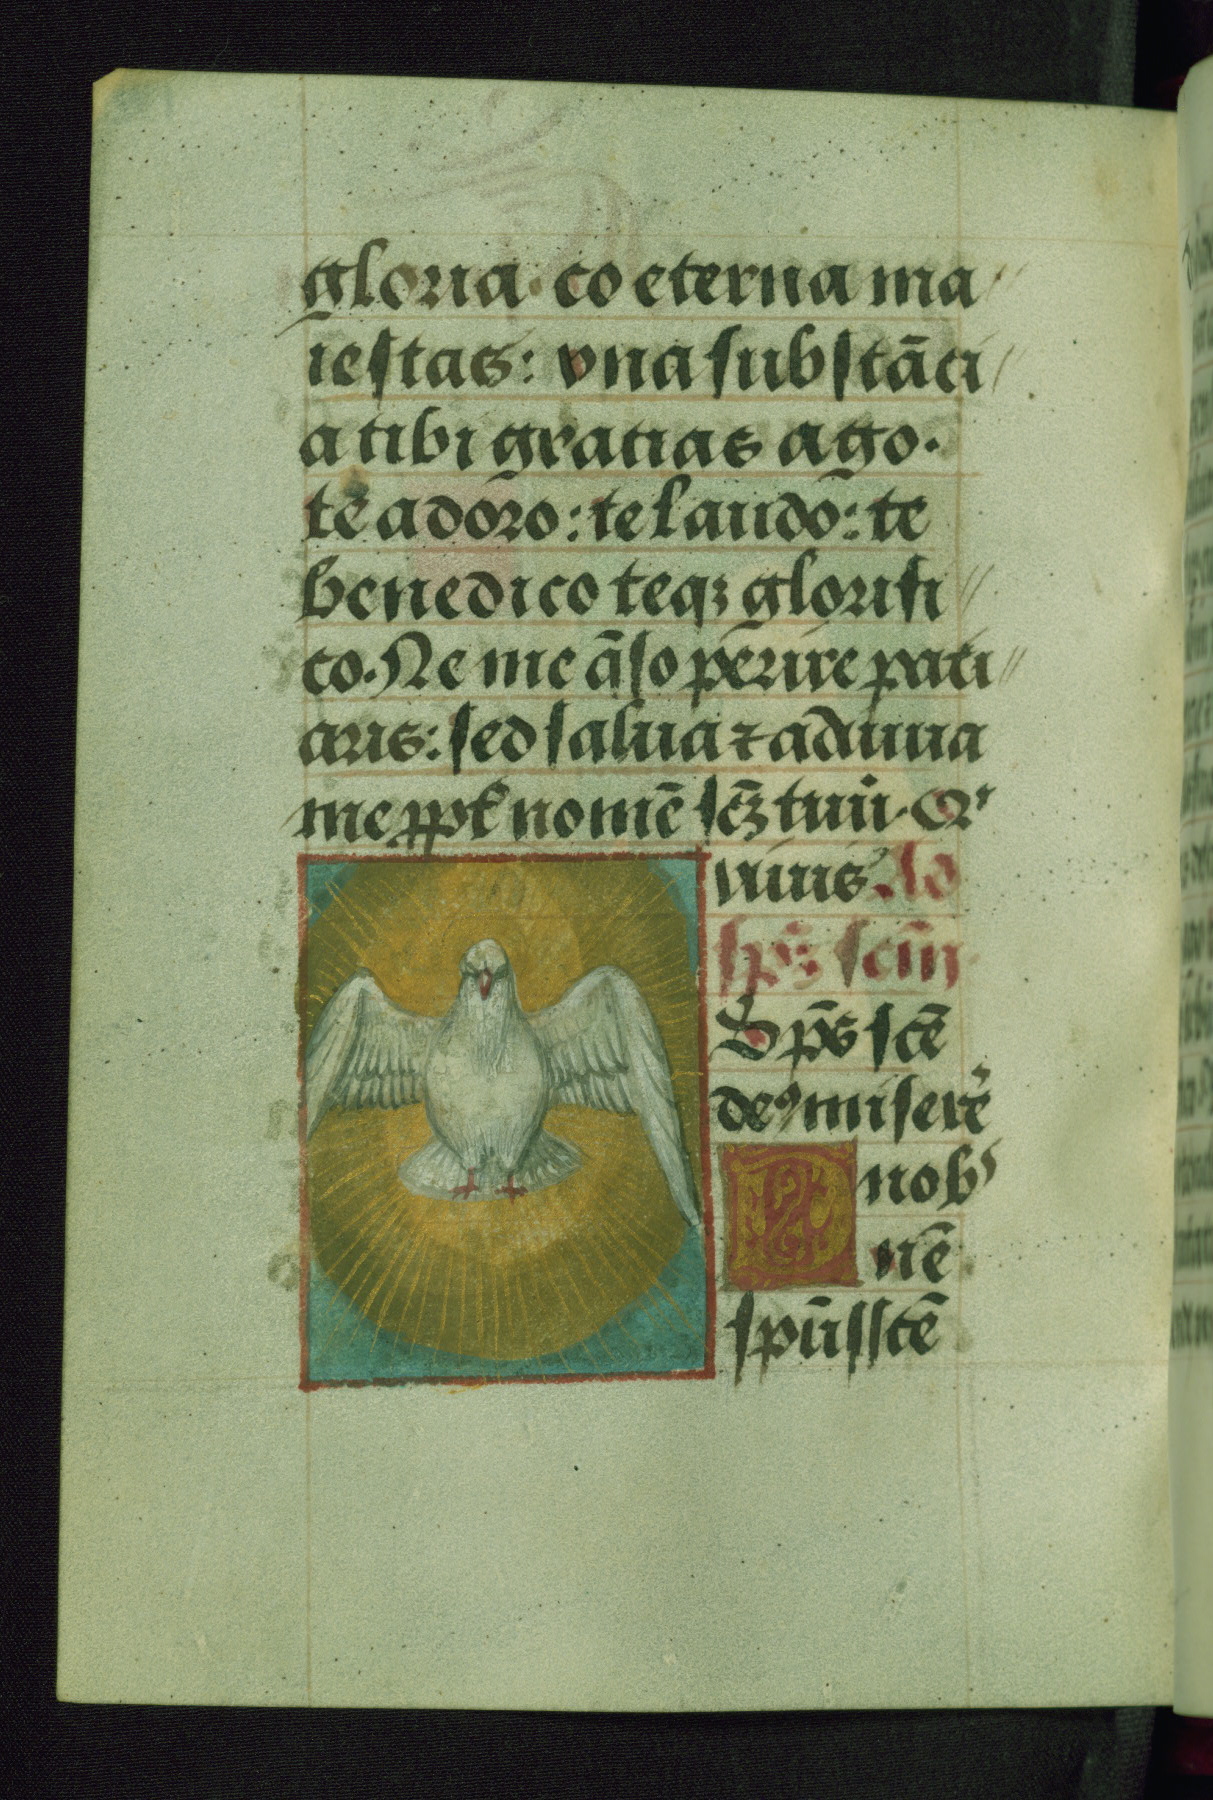 gloria· co eterna ma
iestas: vna substāci
a tibi gratias ago·
te adoro: te laudo: te
benedico teqꝫ glorifi
co· Ne me q̄so perire pati
aris: sed salua ⁊ adiuua
me ꝓpt̄ nomē scꝫ tuū· Q'
viuis· Ad
spm̄ scm̄
O sp̄s scē
deꝰ miserē
nob'
D nē
spūs scē